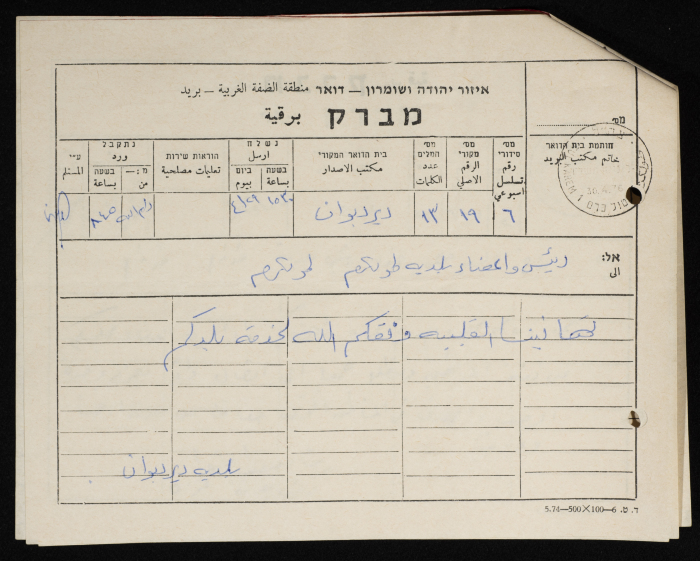 איזור יהודה ושומרון – דואר منطقة الضفة الغربية – بريد
מברק برقية
מס׳
חותמת בית הדואר
خاتم مكتب البريد
מס׳ סידורי
رقم تسلسل اسبوعي
מס׳ מקורי
الرقم الاصلي
מס׳ המלים
عدد الكلمات
בית הדואר המקורי
مكتب الاصدار
נשלח
ارسل
בשעה
بساعة
ביום
بيوم
הוראות שירות
تعليمات مصلحية
נתקבל
ورد
בשעה
بساعة
מ:—
من
ע״י
المستلم
٦
١٩
١٣
ديردبوان
١٥٣٠
٤/٢٩
رام الله
٨٤٥
אל:
الى
رئيس واعضاء بلديه طولكرم طولكرم
تهانينا القلبيه وفقكم الله لخدمة بلدكم
بلديه ديردبوان
ד. ט. 6—100×500—5.74